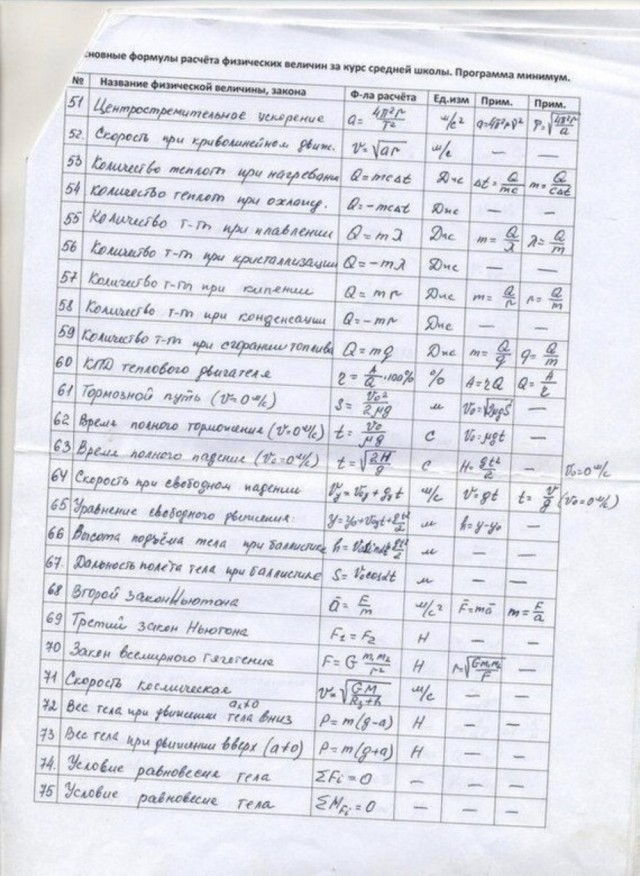 сновные формулы расчёта физических величин за курс средней школы. Программа минимум.
№ Название физической величины, закона Ф-ла расчёта Ед.изм Прим. Прим.
51 Центростремительное ускорение a=4π²r/T² м/с² a=4π²rν² T=√4π²r/a
52. Скорость при криволинейном движ. v=√ar м/с — —
53 Количество теплот при нагревани Q=mcΔt Дж Δt=Q/mc m=Q/cΔt
54 Количество теплот при охлажд. Q=-mcΔt Дж — —
55 Количество т-т при плавлении Q=mλ Дж m=Q/λ λ=Q/m
56 Количество т-т при кристаллизации Q=-mλ Дж — —
57 Количест т-т при кипении Q=mr Дж m=Q/r r=Q/m
58 Количество т-т при конденсации Q=-mr Дж — —
59 Количество т-т при сгорании топлива Q=mq Дж m=Q/q q=Q/m
60 КПД теплового двигателя η=A/Q·100% % A=ηQ Q=A/η
61 Тормозной путь (v=0 м/с) S=v₀²/2μg м v₀=√2μgS —
62 Время полного торможение (v=0 м/с) t=v₀/μg с v₀=μgt —
63 Время полного падение (v₀=0 м/с) t=√2H/g с H=gt²/2 — v₀=0 м/с
64 Скорость при свободном падении vy=v₀y+gyt м/с v=gt t=v/g (v₀=0 м/с)
65 Уравнение свободного движения: y=y₀+v₀yt+gt²/2 м h=y-y₀ —
66 Высота подъёма тела при баллистике h=v₀sinαt+gt²/2 м — —
67. Дальность полёта тела при баллистике S=v₀cosαt м — —
68 Второй закон Ньютона ā=F/m м/с² F̄=mā m=F/a
69 Третий закон Ньютона F₁=F₂ Н — —
70 Закон всемирного тяготение F=G m₁m₂/r² Н r=√Gm₁m₂/F —
71 Скорость космическая v=√GM/Rз+h м/с — —
72 Вес тела при движении тела вниз a≠0 P=m(g-a) Н — —
73 Вес тела при движении вверх (a≠0) P=m(g+a) Н — —
74. Условие равновесие тела ΣFi=0 — — —
75 Условие равновесие тела ΣMFi=0 — — —